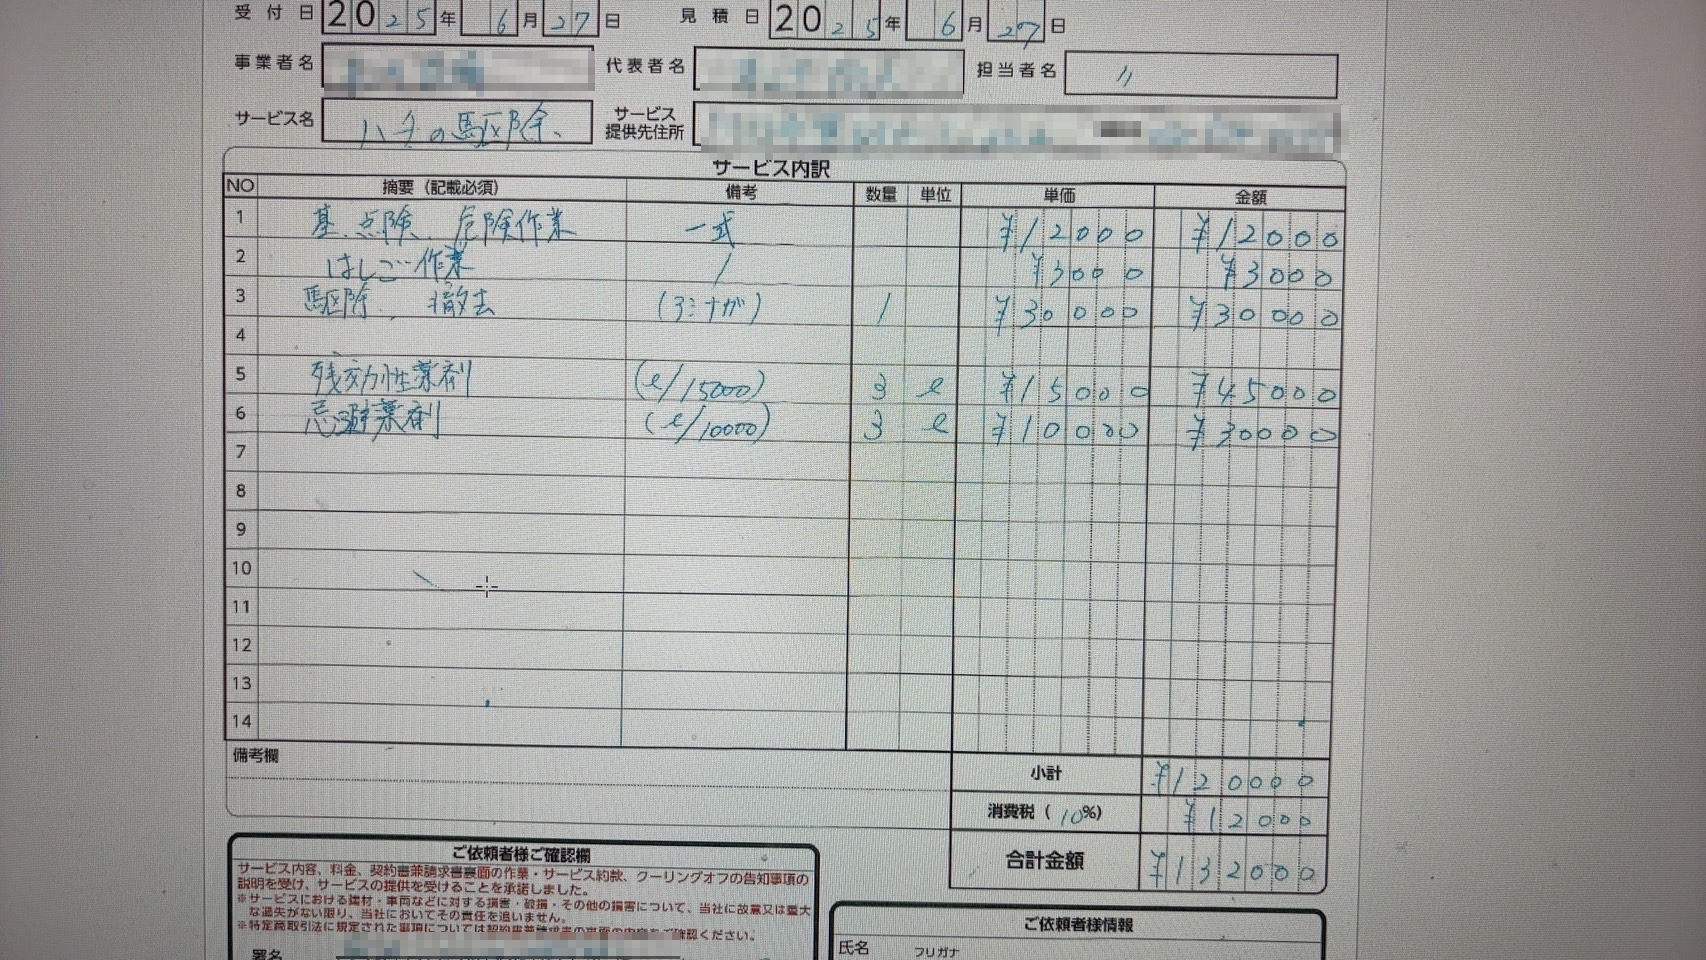 受付日 2025年 6月27日 見積日 2025年 6月27日
事業者名 代表者名 担当者名 〃
サービス名 ハチの駆除、 サービス提供先住所
サービス内訳
NO 摘要（記載必須） 備考 数量 単位 単価 金額
1 基、点険、危険作業 一式 ¥12000 ¥12000
2 はしご作業 / ¥3000 ¥3000
3 駆除、撤去 1 ¥30000 ¥30000
4
5 残効性薬剤 (ℓ/15000) 3 ℓ ¥15000 ¥45000
6 忌避薬剤 (ℓ/10000) 3 ℓ ¥10000 ¥30000
7
8
9
10
11
12
13
14
備考欄
小計 ¥120000
消費税（10%） ¥12000
合計金額 ¥132000
ご依頼者様ご確認欄
サービス内容、料金、契約書兼請求書裏面の作業・サービス約款、クーリングオフの告知事項の
説明を受け、サービスの提供を受けることを承諾しました。
※サービスにおける建材・車両などに対する損害・破損・その他の損害について、当社に故意又は重大
な過失がない限り、当社においてその責任を追いません。
※特定商取引法に規定された事項については契約書兼請求書の裏面の内容をご確認ください。
署名
ご依頼者様情報
氏名 フリガナ